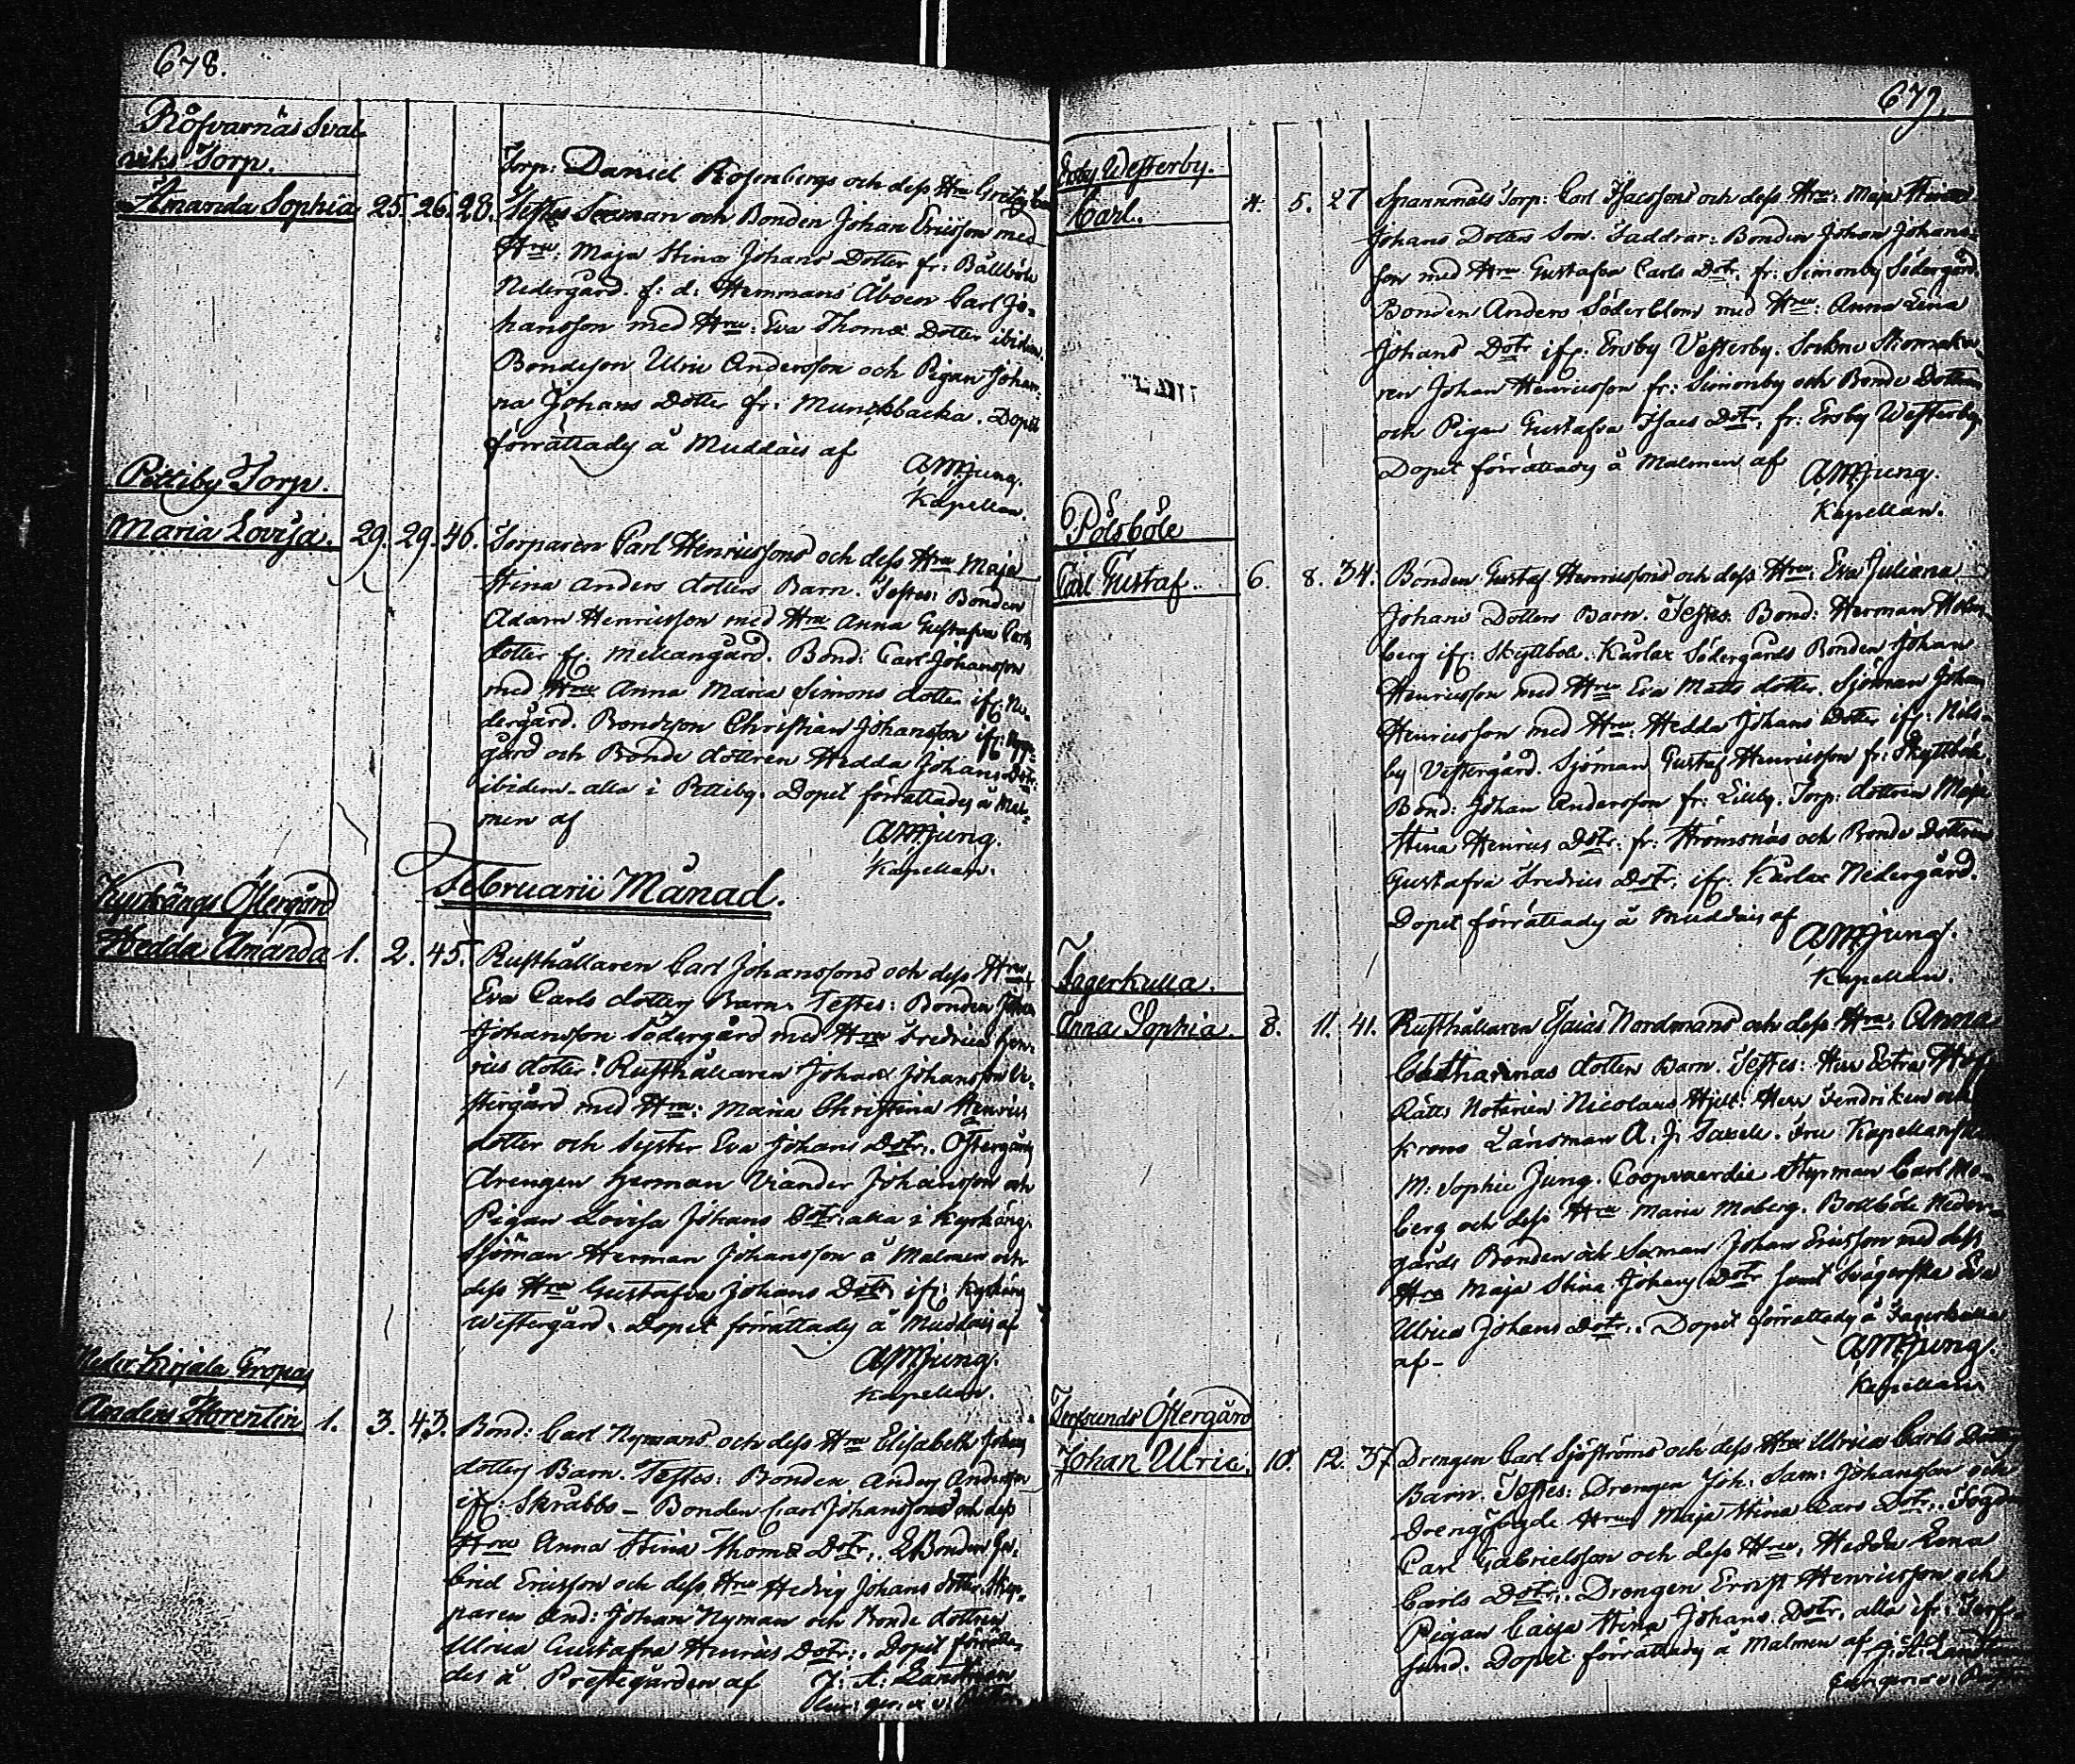 678.
Röfvarnäs Sval
viks Torp.
Amanda Sophia 25. 26. 28.
Torp: Daniel Rosenbergs och dess Hru Greta
Testes Sexman och Bonden Johan Ericsson med
Hru: Maja Stina Johans Dotter fr: Bållböle
Nedergård. f: d: Hemmans Åboen Carl Jo-
hansson med Hru: Eva Thomæ Dotter ibidem.
Bondeson Ulric Andersson och Pigan Johan-
na Johans Dotter fr: Munckbacka. Dopet
förrättades å Muddais af
AMJung.
Kapellan.
Pettiby Torp.
Maria Lovisa. 29. 29. 46.
Torparen Carl Henricssons och dess Hru Maja
Stina Anders dotters Barn. Testes: Bonden
Adam Henricsson med Hru Anna Gustafva Carls
dotter fr Mellangård. Bond: Carl Johansson
med Hru Anna Maria Simons dotter ifr: Ne-
dergård. Bondeson Christian Johansson ifr: Opp-
gård och Bonde dottren Hedda Johans Dotr:
ibidem - alla i Pettiby. Dopet förrättades å Mal-
men af
AMJung.
Kapellan.
Februarii Månad.
Kyrkängs Östergård
Hedda Amanda 1. 2. 45.
Rusthållaren Carl Johanssons och dess Hru
Eva Carls dotters Barn. Testes: Bonden Johan
Johansson Södergård med Hru Fredrica Hen-
rics dotter. Rusthållaren Johan Johansson Ve-
stergård med Hru: Maria Christina Henrics
dotter och Syster Eva Johans Dotr:. Östergårds
Drengen Herman Viander Johansson och
Pigan Lovisa Johans Dotr: alla i Kyrkäng.
Sjöman Herman Johansson å Malmen och
dess Hru Gustafva Johans Dotr: ifr: Kyrkäng
Westergård. Dopet förrättades å Muddais af
AMJung.
Kapellan.
Neder Kirjala Gropas
Anders Florentin 1. 3. 43.
Bond: Carl Nymans och dess Hru Elisabeth Johans
dotters Barn. Testes: Bonden Anders Andersson
ifr: Skräbbo - Bonden Carl Johansson och dess
Hru Anna Stina Thomæ Dotr:. Bonden Ga-
briel Ericsson och dess Hru Hedvig Johans dotter. Skep-
paren And: Johan Nyman och Bonde dottren
Ulrica Gustafva Henrics Dotr:. Dopet förrätta-
des å Prestegården af J: A: Landtman
679.
Ersby Westerby.
Carl. 4. 5. 27
Spannmåls Torp: Carl Isacssons och dess Hru: Maja Stina
Johans Dotters Son. Faddrar: Bonden Johan Johans-
son med Hru Gustafva Carls Dotr. fr: Simonby Södergård.
Bonden Anders Söderblom med Hru: Anna Lena
Johans Dotr ifr: Ersby Vesterby. Sockne Skomaka-
ren Johan Henricsson fr: Simonby och Bonde Dottren
och Pigan Gustafva Isacs Dotr. fr: Ersby Westerby
Dopet förrättades å Malmen af
AMJung.
Kapellan.
Pölsböle
Carl Gustaf. 6. 8. 34.
Bonden Gustaf Henricssons och dess Hru: Eva Juliana
Johans Dotters Barn. Testes: Bond: Herman Holm-
berg ifr: Skyttböle. Kårlax Södergårds Bonden Johan
Henricsson med Hru Eva Matts dotter. Sjöman Johan
Henricsson med Hru: Hedda Johans Dotter ifr: Nils-
by Vestergård. Sjöman Gustaf Henricsson fr: Skyttböle.
Bond: Johan Andersson fr: Lillby. Torp: dottren Maja
Stina Henrics Dotr: fr: Strömsnäs och Bonde Dottren
Gustafva Fredrics Dotr: ifr: Kårlax Nedergård.
Dopet förrättades å Muddais af
AMJung.
Kapellan.
Jagerkulla.
Anna Sophia. 8. 11. 41.
Rusthållaren Esaias Nordmans och dess Hru: Anna
Catharinas dotters Barn. Testes: Herr Extra Hof
Rätts Notarien Nicolaus Hjelt: Herr Fendriken och
Krono Länsman A: J: Saxell. Fru Kapellanskan
M: Sophie Jung. Coopvaerdie Styrman Carl Mo-
berg och dess Hru Maria Moberg. Bollböle Neder-
gårds Bonden och Sexman Johan Ericsson med dess
Hru Maja Stina Johans Dotr samt Svägerska Eva
Ulrica Johans Dotr:. Dopet förrättades å Jagerkulla
af -
AMJung.
Kapellan.
Terfsunds Östergård
Johan Ulric. 10. 12. 37
Drengen Carl Sjöströms och dess Hru Ulrica Carls Dotters
Barn. Testes: Drengen Joh: Sam: Johansson och
Maja Stina Lars Dotr:.
Carl Gabrielsson och dess Hru: Hedda Lena
Carls Dotr:. Drengen Ernst Henricsson och
Pigan Cajsa Stina Johans Dotr. alla ifr: Terf-
sund. Dopet förrättades å Malmen af J: A: Landtman